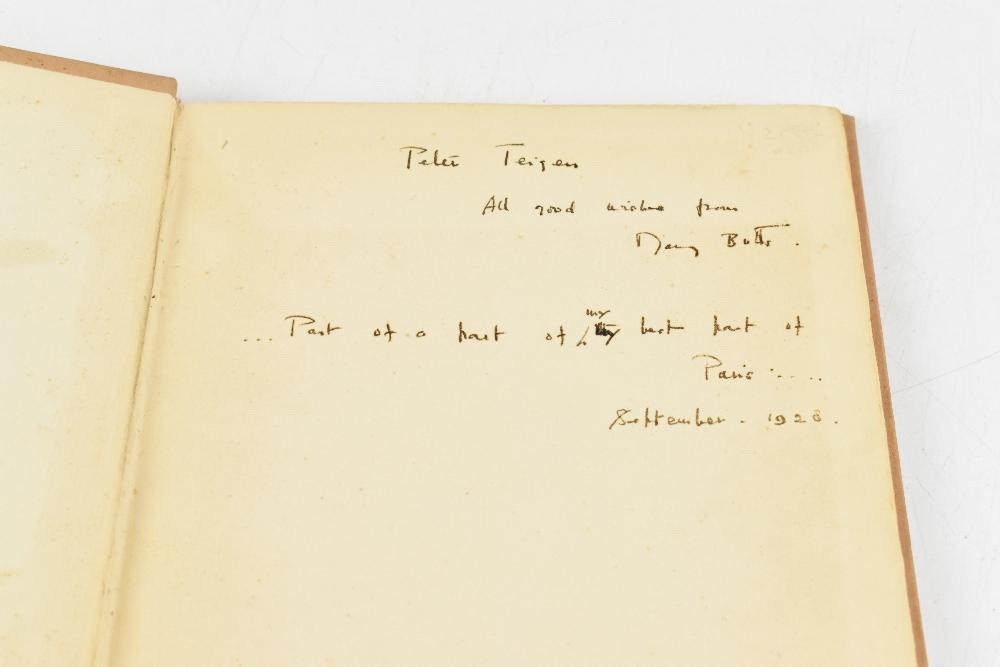 Peter Teigen
All good wishes from
Mary Butts.
... Part of a part of my best part of
Paris .....
September. 1928.